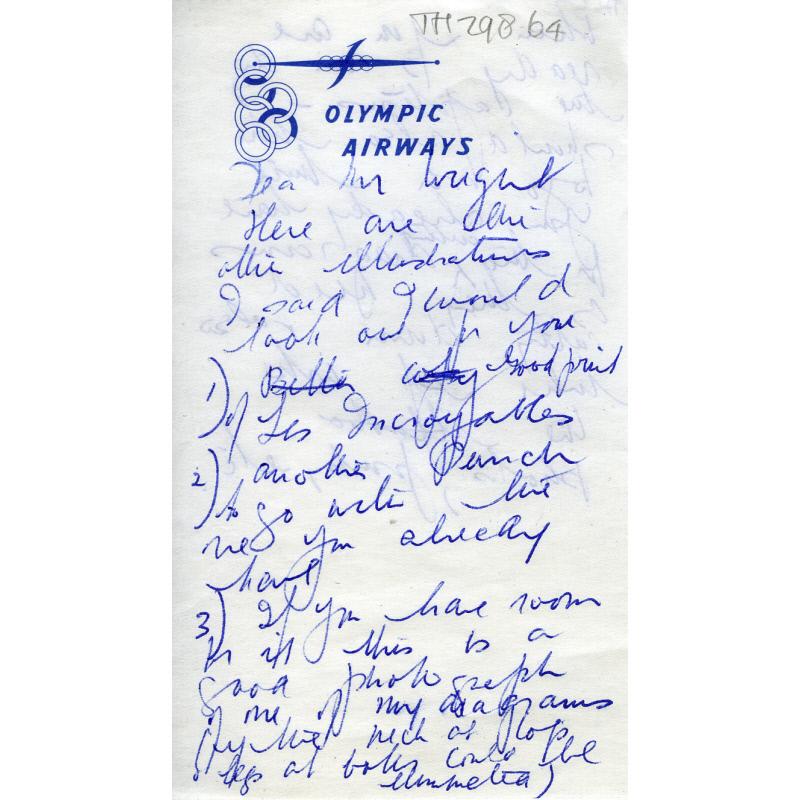 TH 298 64
OLYMPIC
AIRWAYS
Dear Mr Wright
Here are the
other illustrations
I said I would
look out for you
1) Better copy Good print
of Les Incroyables
2) another Punch
to go with the
one you already
have
3) If you have room
for it this is a
good photograph
of one of my diagrams
(if the neck at top
& legs at bottom could be
eliminated)